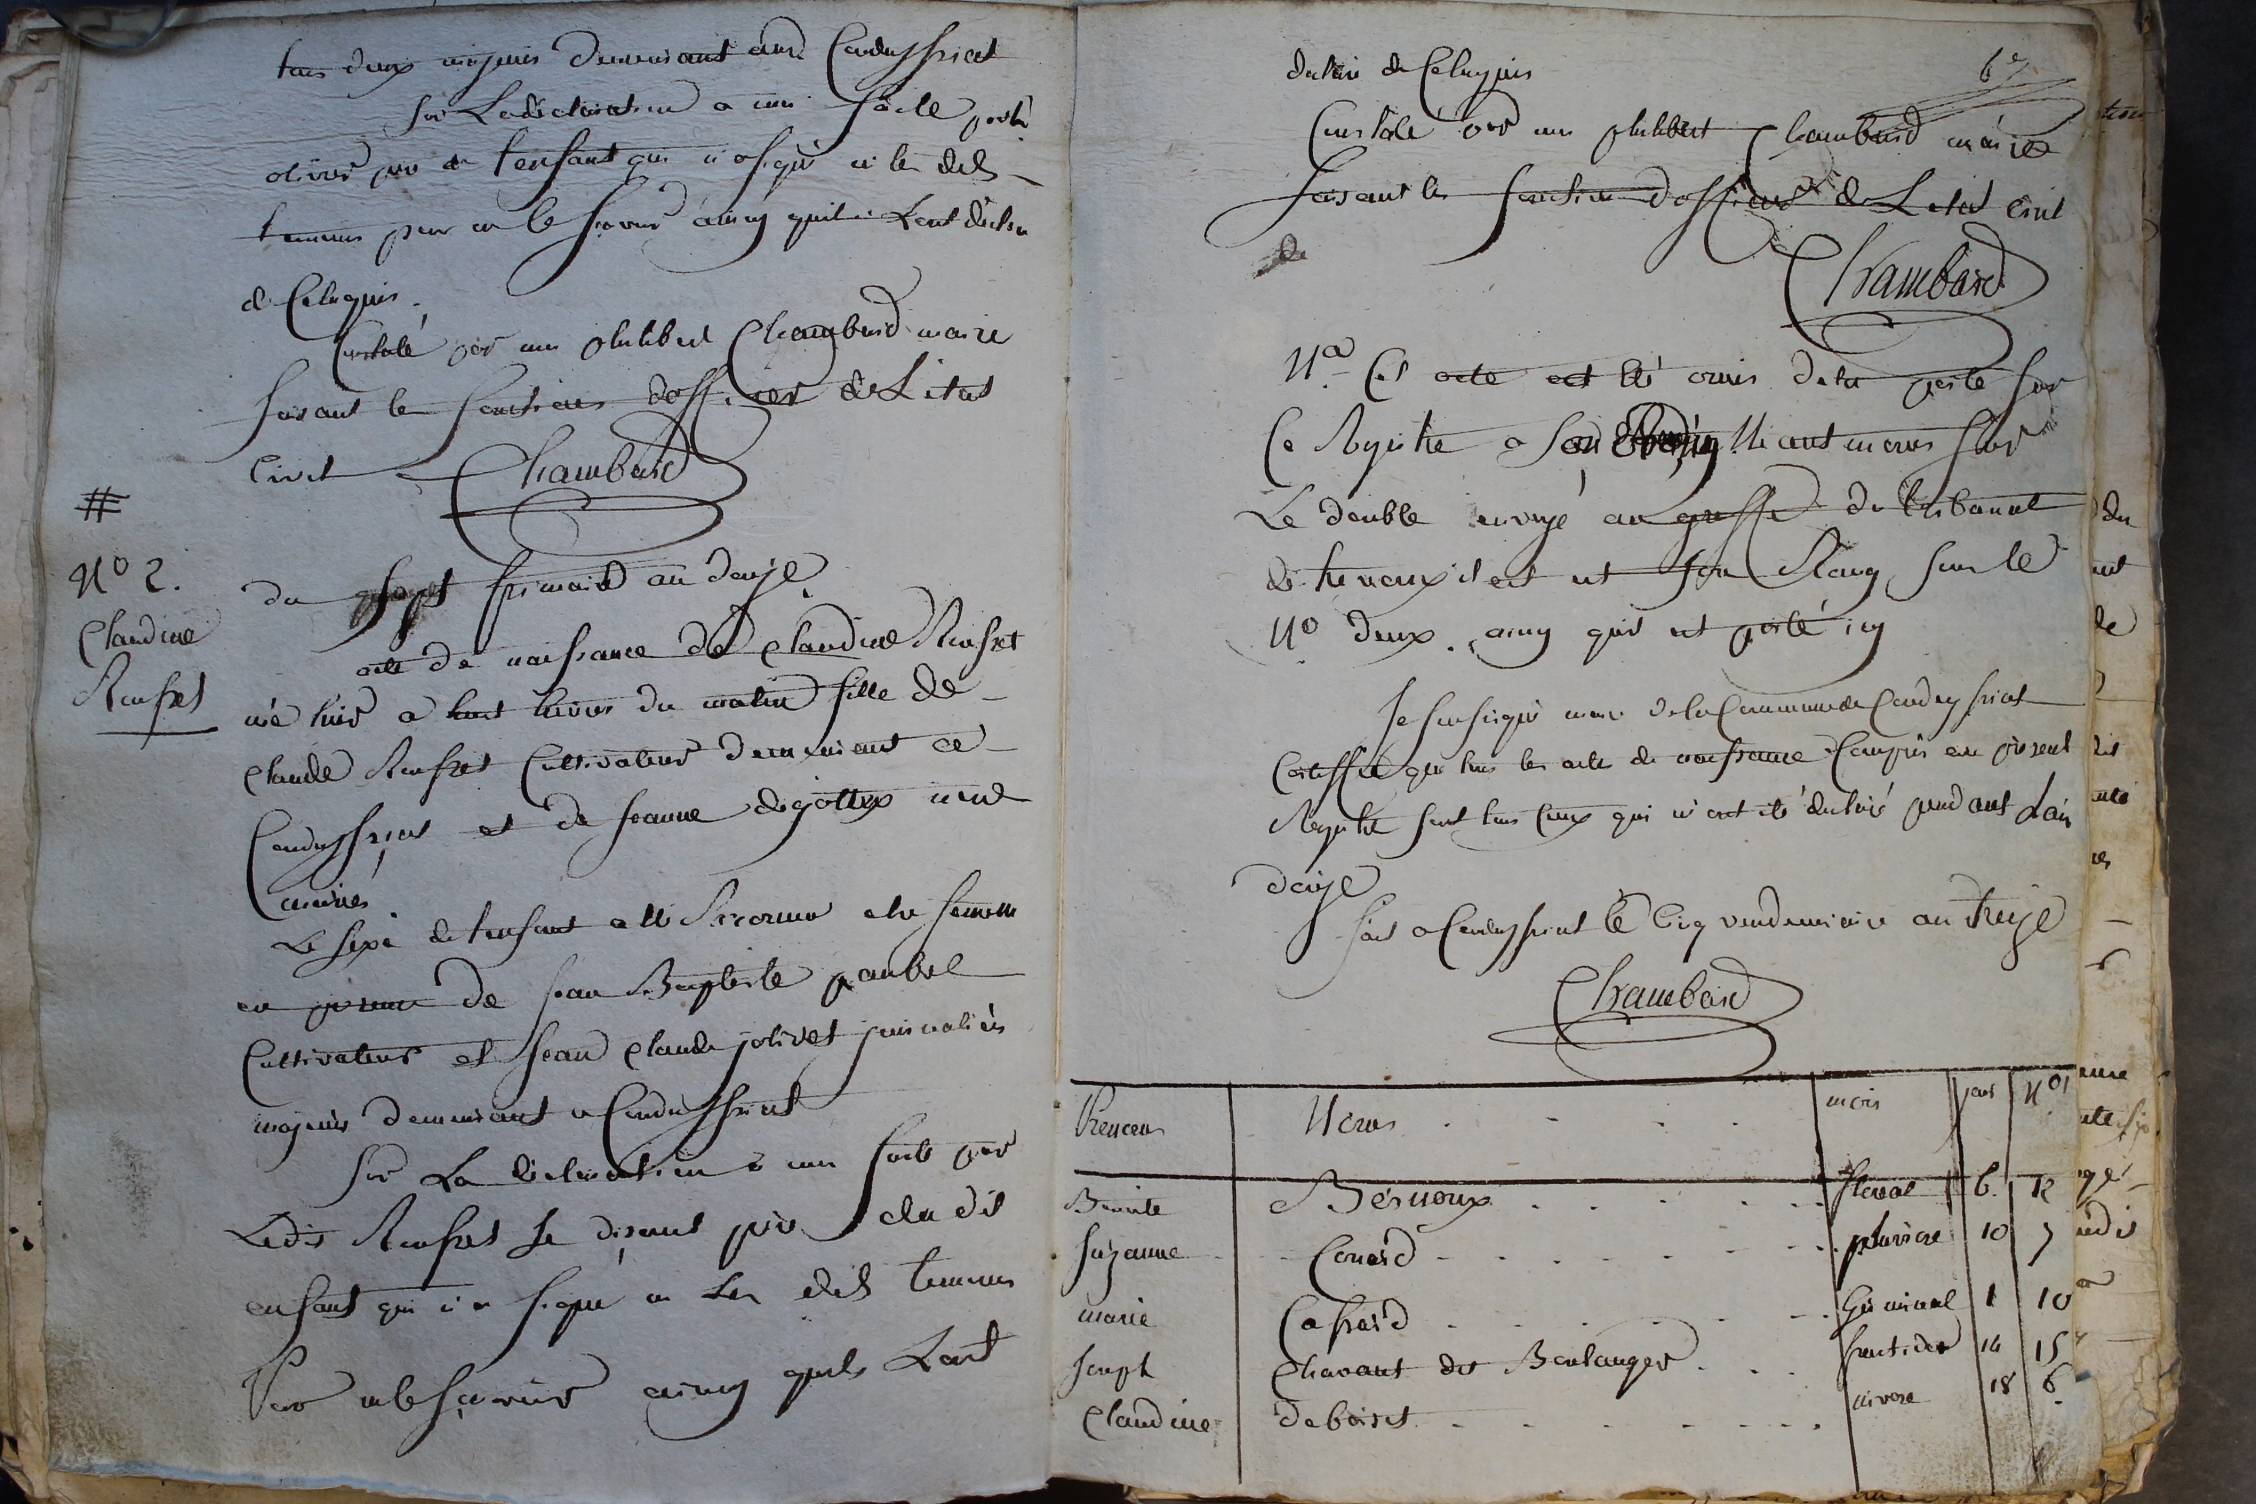 tous deux majeurs demeurant aud Condeyssiat
Sur La déclaration a moi faite par
olivier per de lenfant qui n a signé ni les dits
temoins pour ne le savoir ainsy quils Lont déclaré
de Ce Requis.
Constaté par moi philibert Chambard maire
faisant les fonctions dofficier de L'état
Civil Chambard
#
N° 2.
Claudine
Rousset
du sept frimaire an douze
acte de naissance de Claudine Rousset
née hier a huit heures du matin fille de
Claude Rousset Cultivateur demeurant a
Condeyssiat et de jeanne degottex
mariés
Le sexe de lenfant a été Reconnu etre femelle
en presence de jean Baptiste
Cultivateur et jean Claude jolivet journaliers
majeurs demeurant a Condeyssiat
Sur La déclaration a moi faite par
Ledit Rousset Se disant père du dit
enfant qui n'a signé ni Les dits temoins
Pour ne le scavoir ainsy quils Lont
déclaré de Ce Requis
67
Constaté par moi philibert Chambard maire
faisant les fonctions d'officier de L'état Civil
Chambard
Na Cet acte est été omis de le porter sur
Ce Registre a son Rang Néantmoins sur
Le double envoyé au greffe du tribunal
de trevoux il est a son Rang sous le
N° deux. ainsy quil est porté icy
Je soussigné maire de la Commune de Condeyssiat
Certiffie que tous les actes de naissance Compris au présent
Registre sont tous Ceux qui m'ont été déclaré pendant Lan
douze
fait a Condeyssiat le Cinq vendemiaire an treize
Chambard
Prenoms Noms mois jour Nos
Benoite Bernoux floreal 6 12
Suzanne Conard pluviose 10 7
marie germinal 1 10
Joseph Chavant dit Boulanger fructidor 14 15
Claudine deboist nivose 18 6